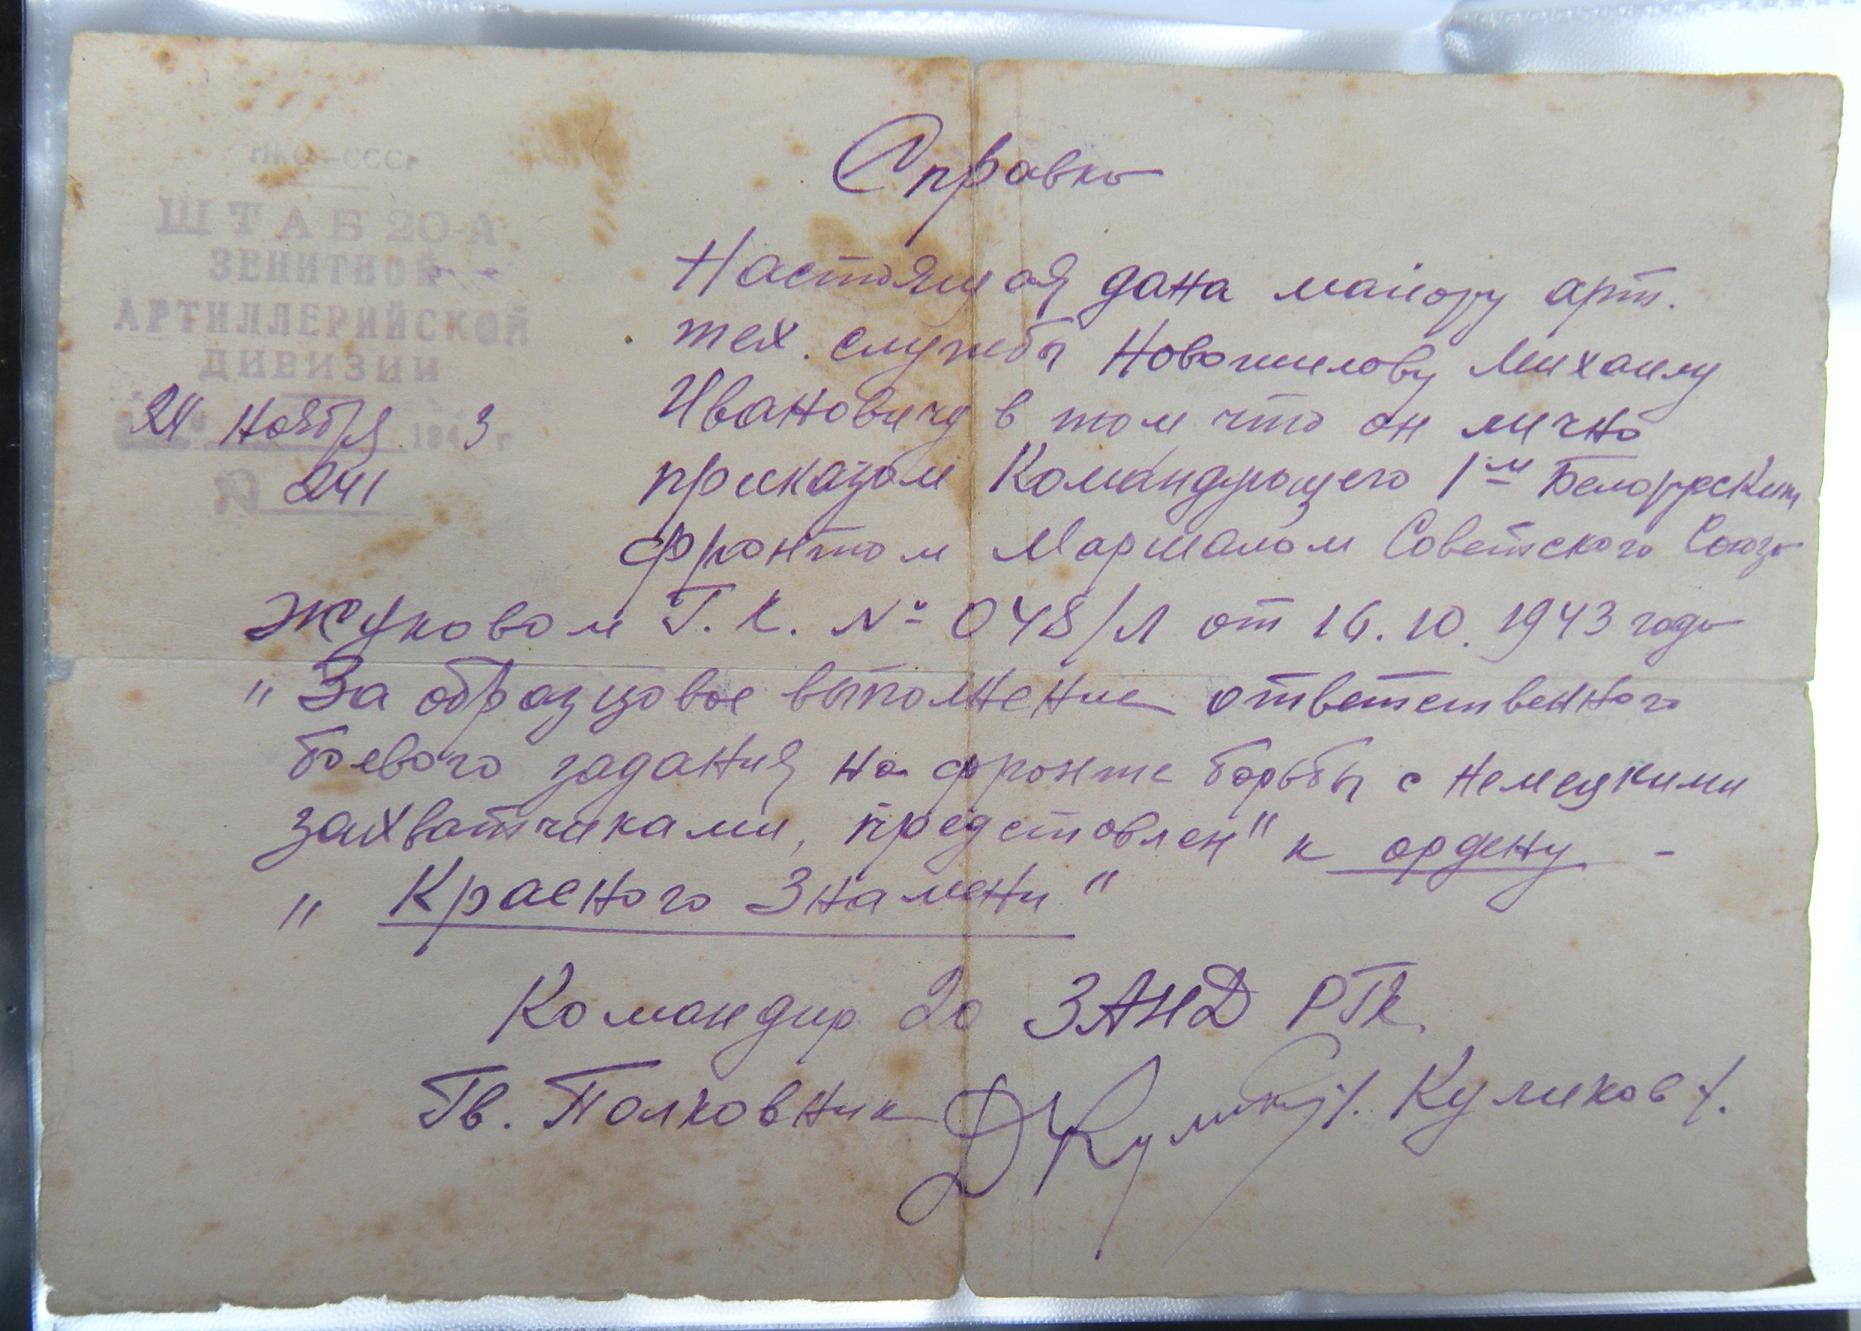 Справка
НКО–СССР
ШТАБ 20-й
ЗЕНИТНОЙ
АРТИЛЛЕРИЙСКОЙ
ДИВИЗИИ
24 Ноября 1943 г
№ 241
Настоящая дана майору арт.
тех. службы Новожилову Михаилу
Ивановичу в том что он лично
приказом Командующего 1м Белорусским
фронтом Маршалом Советского Союза
Жуковым Г. К. № 048/Л от 16.10.1943 года
"За образцовое выполнение ответственного
боевого задания на фронте борьбы с немецкими
захватчиками, представлен" к ордену -
" Красного Знамени "
Командир 20 ЗАНД РГК.
Гв. Полковник /. Куликов /.